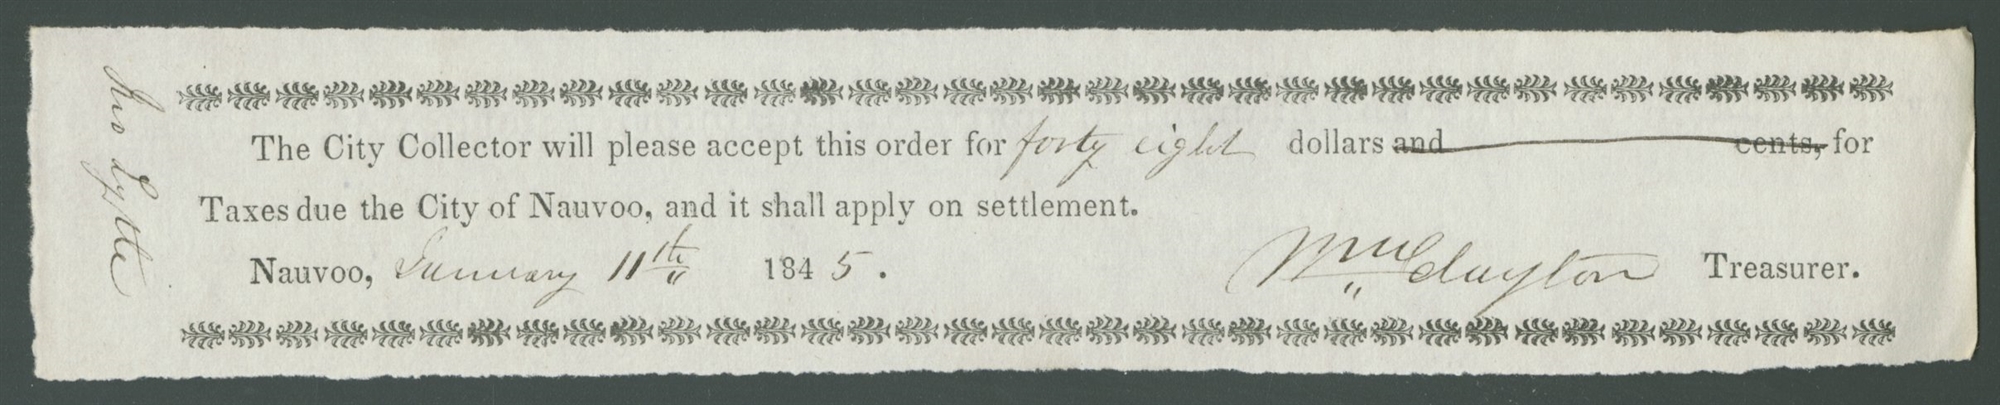 Jno Lytle
The City Collector will please accept this order for forty eight dollars and cents, for
Taxes due the City of Nauvoo, and it shall apply on settlement.
Nauvoo, January 11th 1845. Wm Clayton Treasurer.